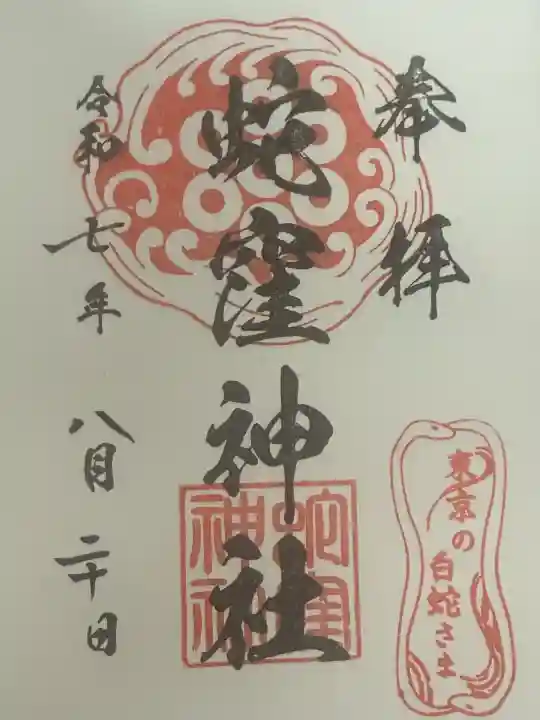 奉拝
蛇窪神社
令和七年
八月二十日
東京の
白蛇さま
蛇窪
神社